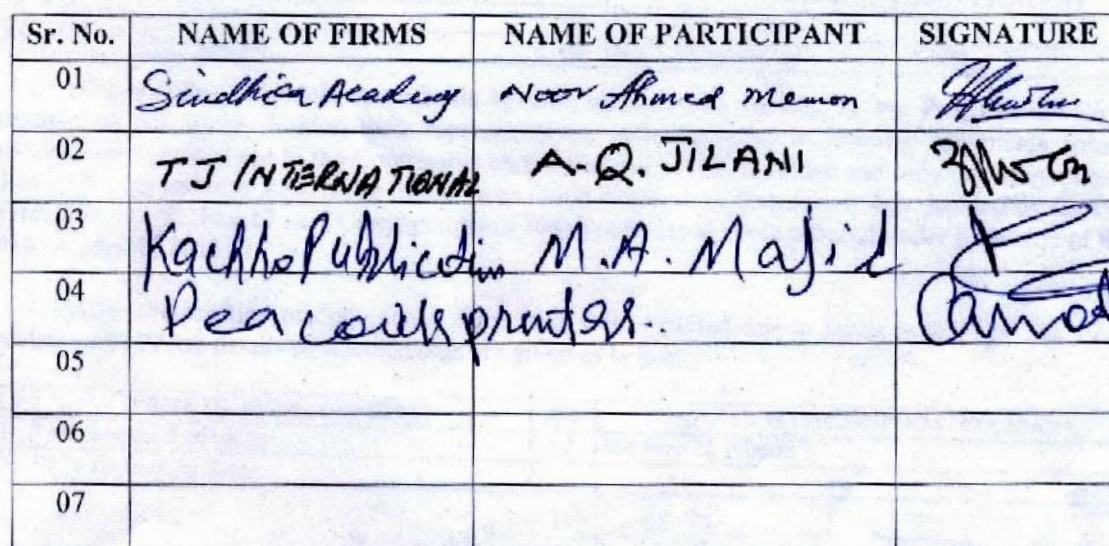 Sr. No. NAME OF FIRMS NAME OF PARTICIPANT SIGNATURE
01 Sindhica Academy Noor Ahmed Memon
02 TJ INTERNATIONAL A.Q. JILANI
03 Kachho Publication M.A. Majid
04 Peacock printers.
05
06
07